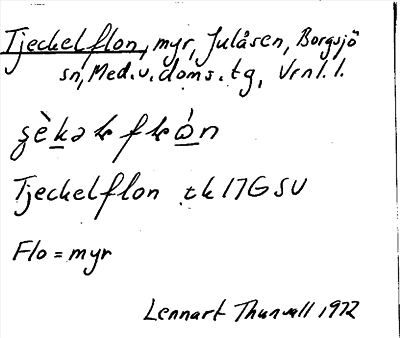 Tjeckelflon, myr, Julåsen, Borgsjö
sn, Med. v. doms. tg, Vrnl. l.
Tjeckelflon tk 17G SV
Flo = myr
Lennart Thunwall 1972